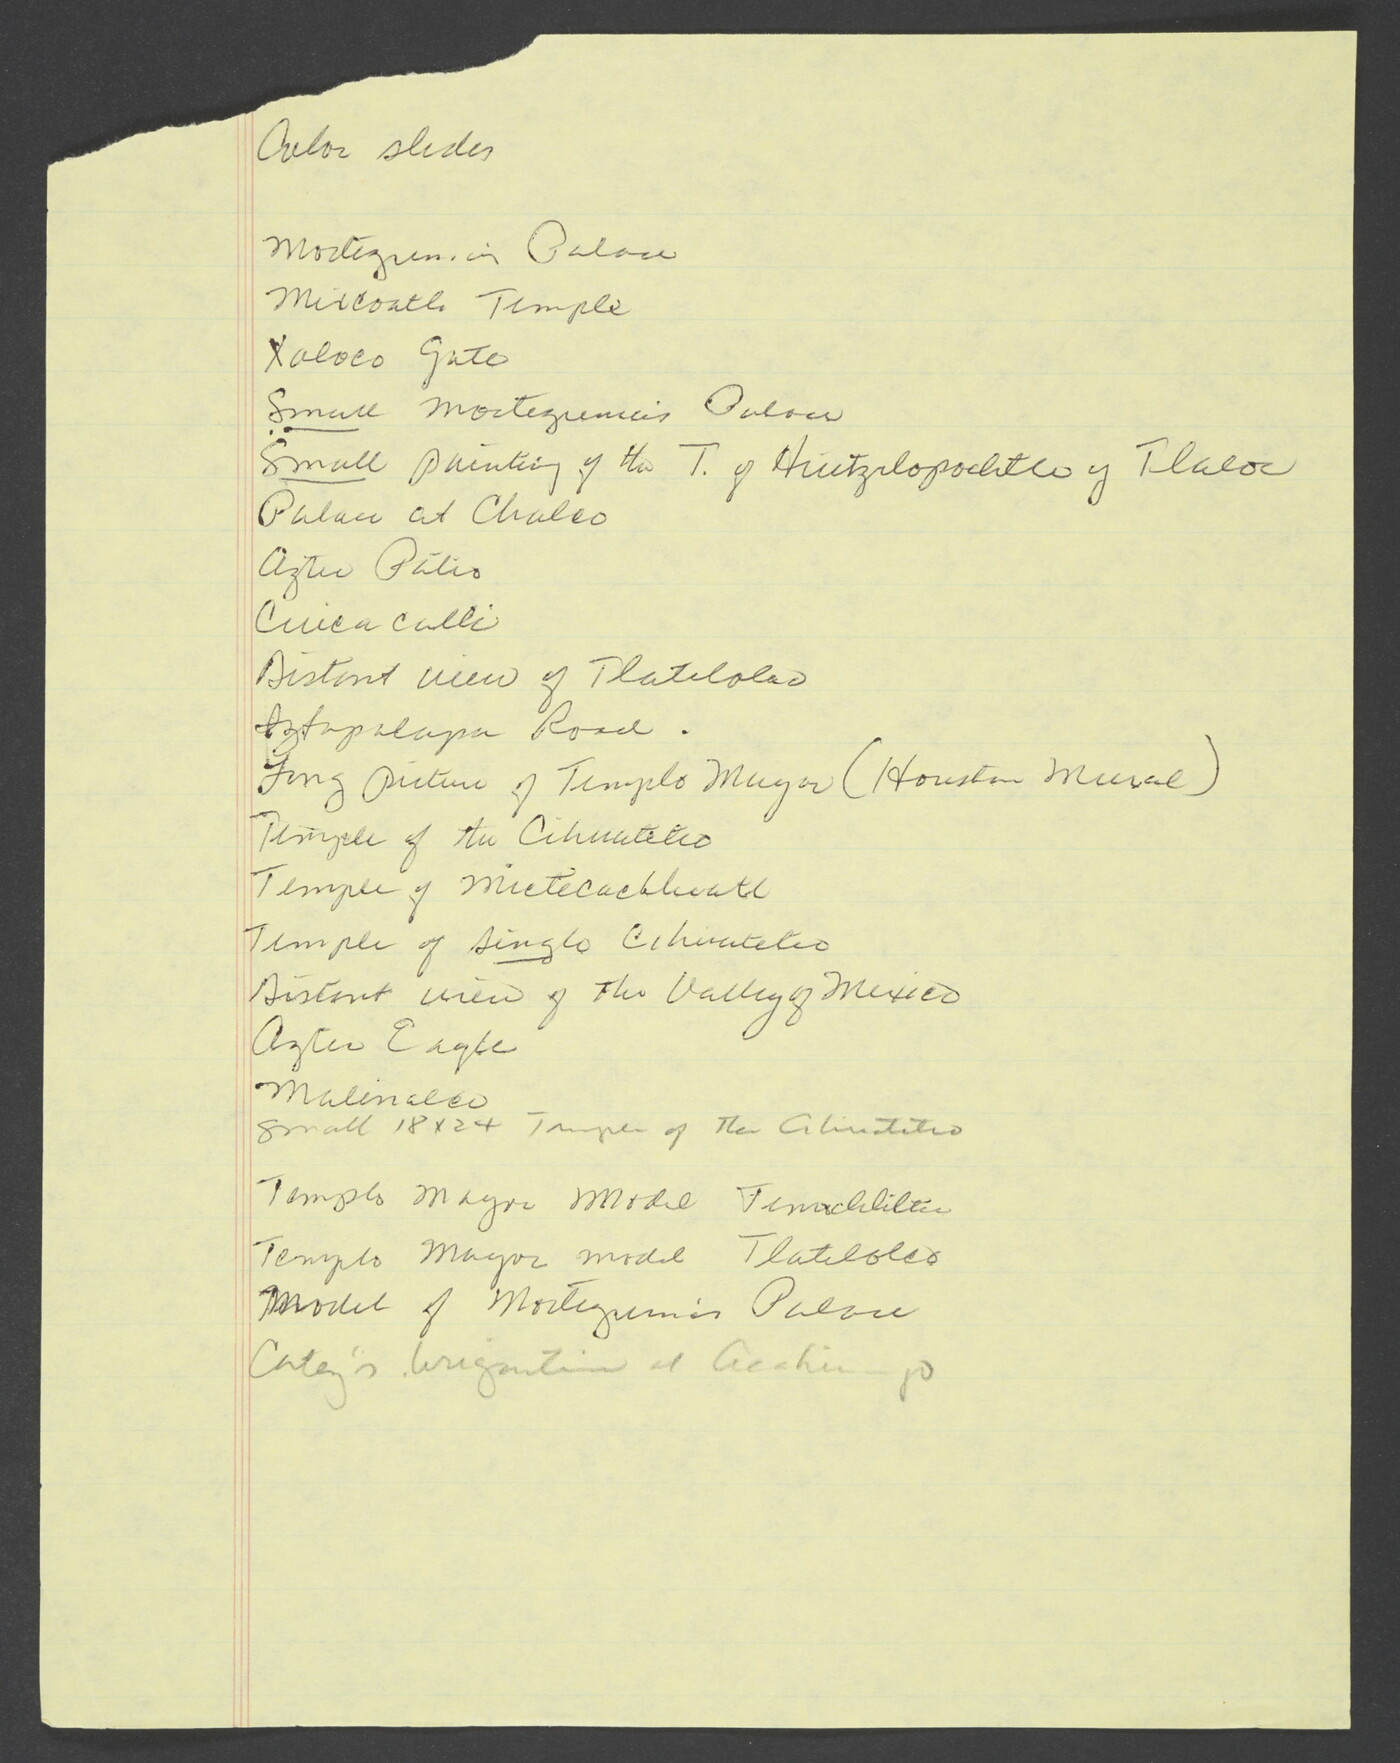 Color slides
Moctezuma's Palace
Mixcoatls Temple
Xoloco Gate
Small Moctezuma's Palace
Small painting of the T. of Huitzilopochtli y Tlaloc
Palace at Chalco
Aztec Patio
Cuicacalli
Distant view of Tlatelolco
Iztapalapa Road.
Long picture of Templo Mayor (Houston Mural)
Temple of the Cihuateteo
Temple of
Temple of single Cihuateteo
Distant view of the Valley of Mexico
Aztec Eagle
Malinalco
Small 18x24 Temple of the Cihuateteo
Templo Mayor Model
Templo Mayor model Tlatelolco
Model of Moctezuma's Palace
brigantine at